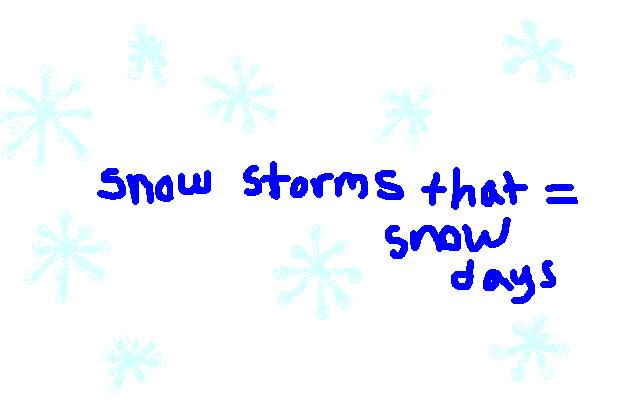 snow storms that =
snow
days